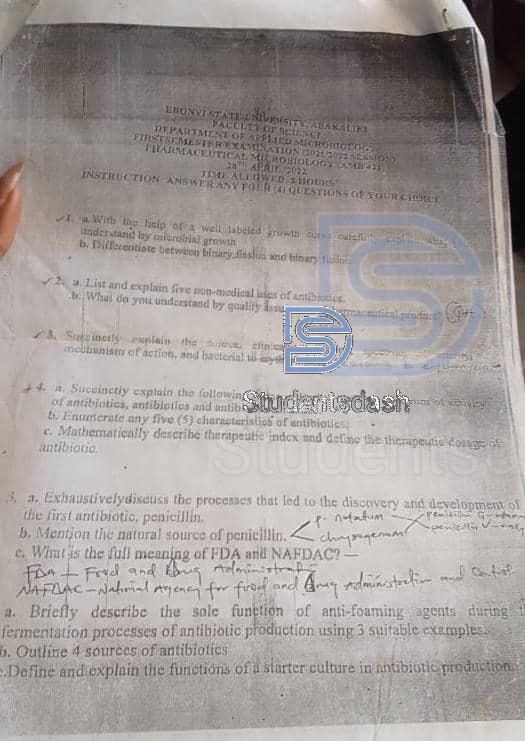 EBONYI STATE UNIVERSITY, ABAKALIKI
FACULTY OF SCIENCE
DEPARTMENT OF APPLIED MICROBIOLOGY
FIRST SEMESTER EXAMINATION (2021/2022 SESSION)
PHARMACEUTICAL MICROBIOLOGY (AMB 423)
28TH APRIL, 2022
TIME ALLOWED: 2 HOURS
INSTRUCTION: ANSWER ANY FOUR (4) QUESTIONS OF YOUR CHOICE
1. a. With the help of a well labeled growth curve carefully explain what you
understand by microbial growth
b. Differentiate between binary fission and binary fusion
2. a. List and explain five non-medical uses of antibiotics.
b. What do you understand by quality pharmaceutical product?
3. Succinctly explain the spectrum activity
mechanism of action, and bacterial to erythromycin
4. a. Succinctly explain the following of activity
of antibiotics, antibiotics and
b. Enumerate any five (5) characteristics of antibiotics.
c. Mathematically describe therapeutic index and define the therapeutic dosage of
antibiotic.
a. Exhaustivelydiscuss the processes that led to the discovery and development of
the first antibiotic, penicillin.
P. notatum
penicillin G
b. Mention the natural source of penicillin.
chrysogenum
penicillin V
c. What is the full meaning of FDA and NAFDAC?
FDA - Food and Drug Administrat
NAFDAC - National Agency for food and Drug Administration and Control
a. Briefly describe the sole function of anti-foaming agents during
fermentation processes of antibiotic production using 3 suitable examples.
b. Outline 4 sources of antibiotics
c.Define and explain the functions of a starter culture in antibiotic production.
Studentsdash